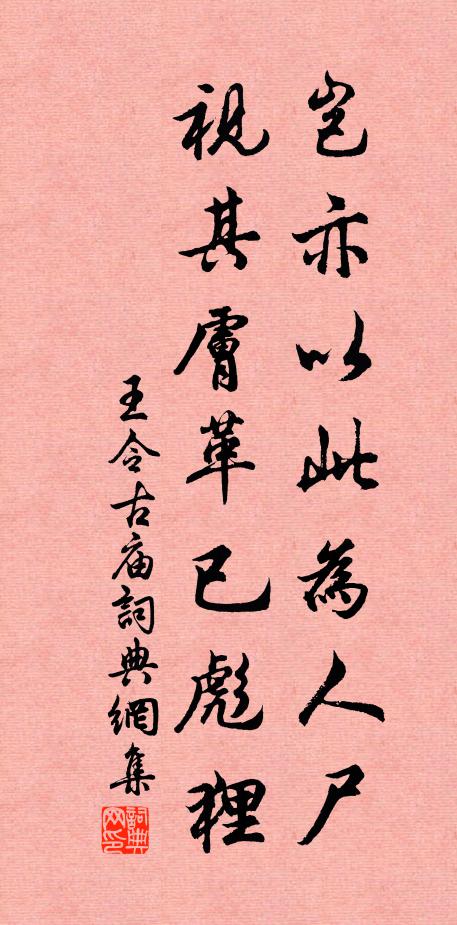 豈亦以此為人尸
視其膚革已彪狸
王令古庙詞典網集
詞典网印